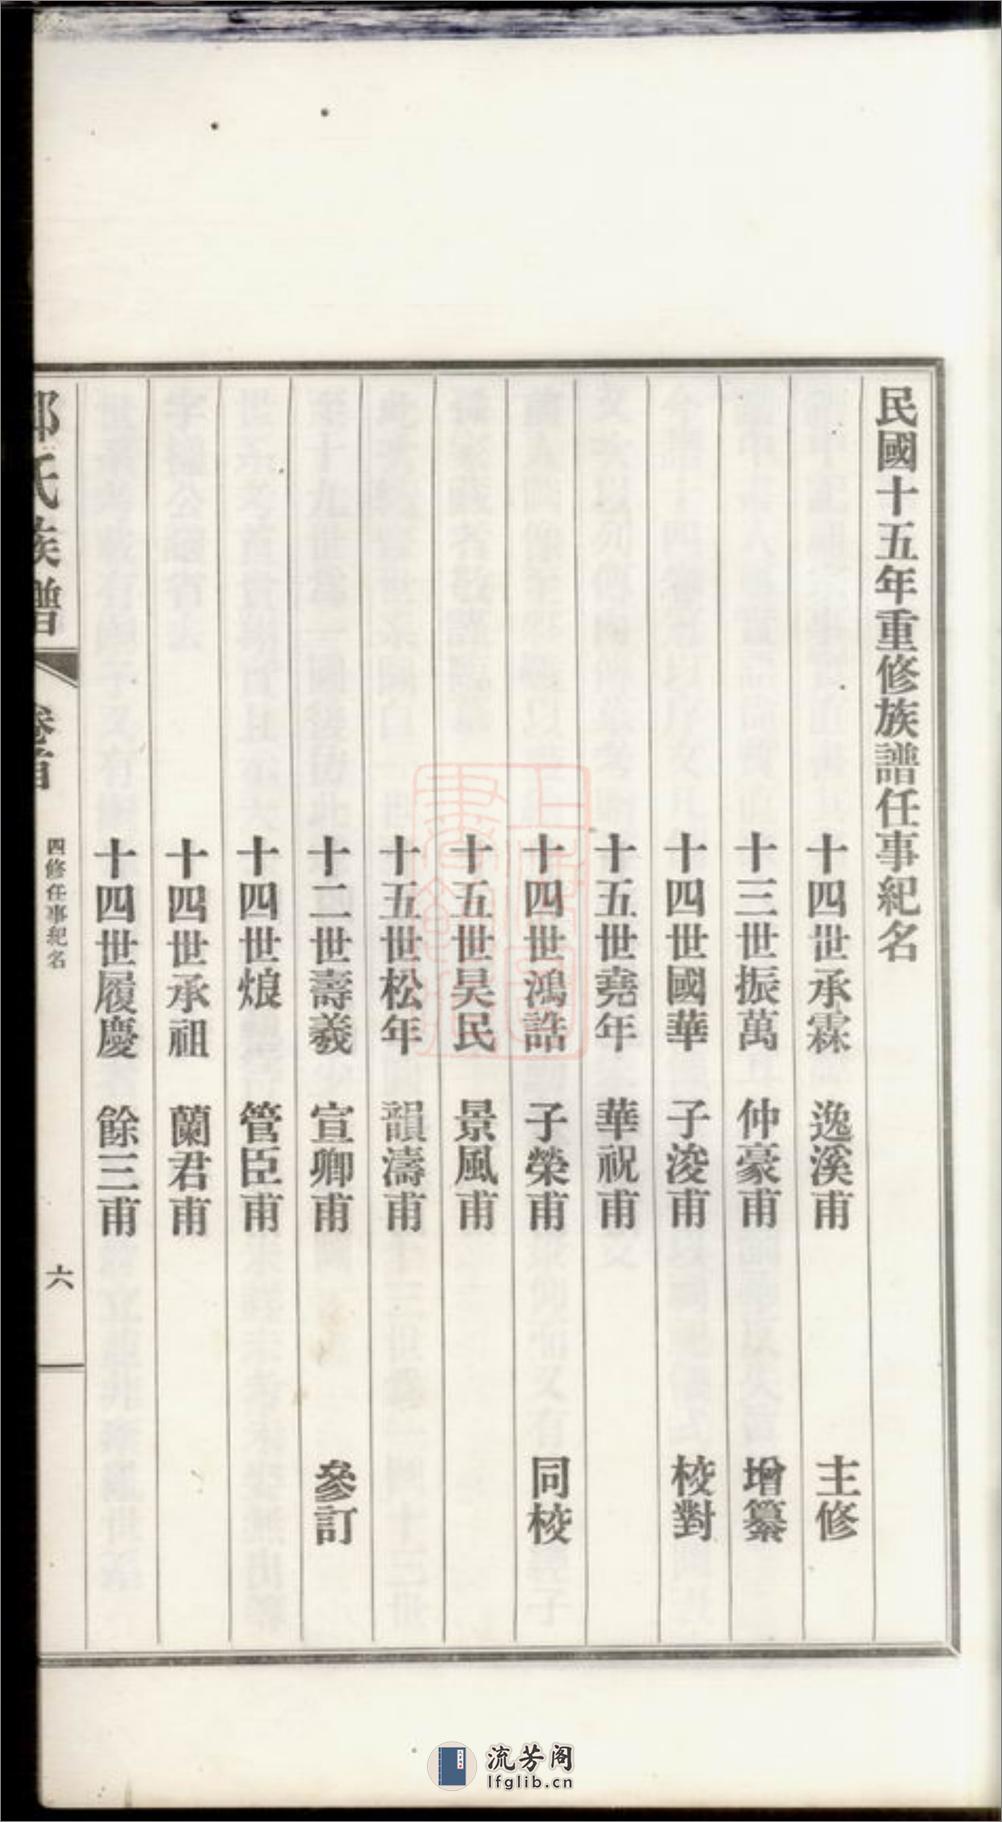 民國十五年重修族譜任事紀名
十四世承霖 逸溪甫 主修
十三世振萬 仲豪甫 增纂
十四世國華 子浚甫 校對
十五世堯年 華祝甫
十四世鴻誥 子榮甫 同校
十五世昊民 景風甫
十五世松年 韻濤甫
十二世壽羲 宣卿甫 參訂
十四世烺 管臣甫
十四世承祖 蘭君甫
十四世履慶 餘三甫
氏族譜
卷首
四修任事紀名
六
流芳阁
lfglib.cn